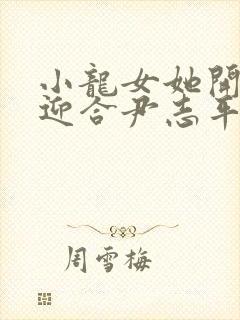 小龍女她開
迎合尹志平
周雪梅